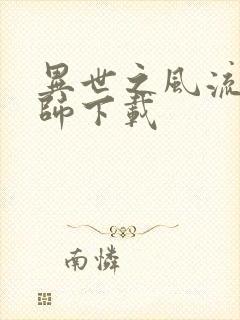 異世之風流
師下載
南憐